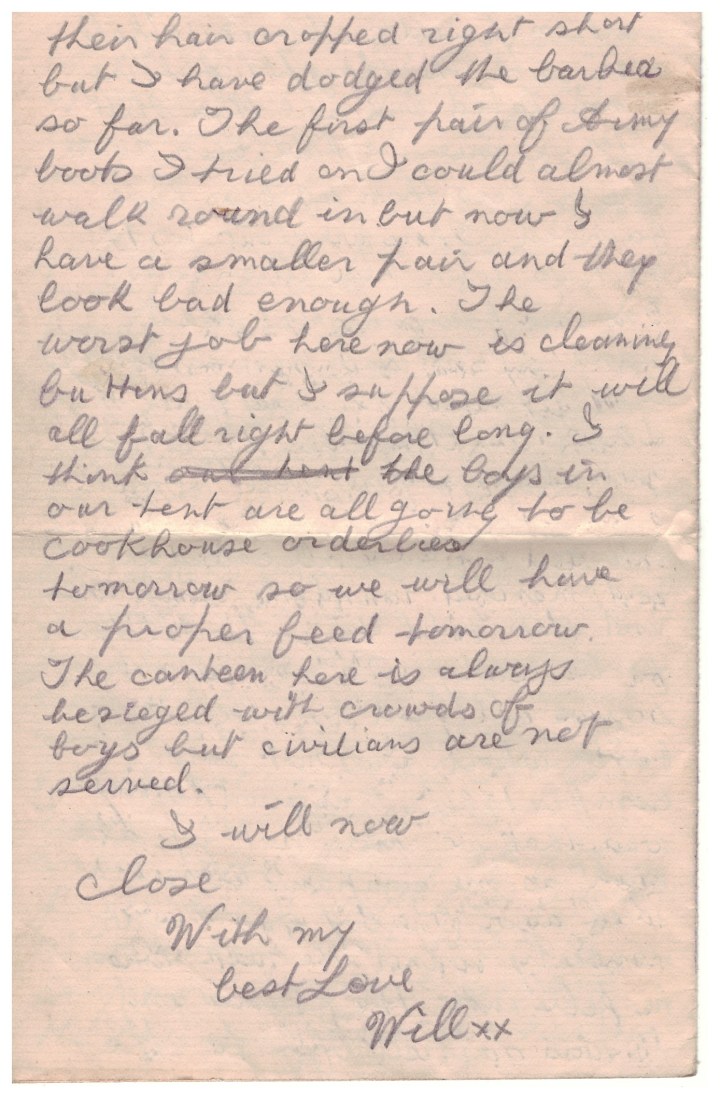 their hair cropped right short
but I have dodged the barber
so far. The first pair of Army
boots I tried on I could almost
walk round in but now I
have a smaller pair and they
look bad enough. The
worst job here now is cleaning
buttons but I suppose it will
all fall right before long. I
think our tent the boys in
our tent are all going to be
cookhouse orderlies
tomorrow so we will have
a proper feed tomorrow.
The canteen here is always
besieged with crowds of
boys but civilians are not
served.
I will now
close
With my
best Love
Will xx